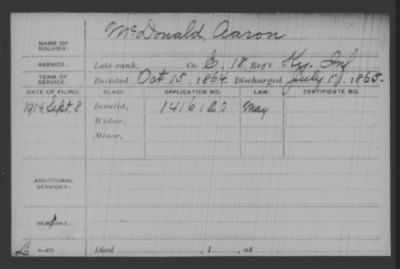 McDonald, Aaron
NAME OF SOLDIER:
SERVICE: Late rank, Co. E, 18 Reg't Ky. Inf
TERM OF SERVICE: Enlisted Oct 15, 1864, Discharged July 17, 1865.
DATE OF FILING. CLASS. APPLICATION NO. LAW. CERTIFICATE NO.
1914 Sept. 8 Invalid, 1416127 May
Widow,
Minor,
ADDITIONAL SERVICES:
REMARKS:
Died , 1 , at